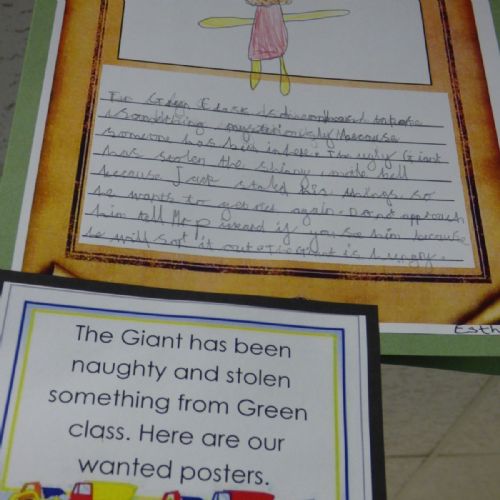 In Green Class
Something mysteriously because
someone has been in here. The ugly Giant
has stolen the shiny maths bell
because Jack his things so
he wants to get again. approach
him tell Mr if you see him because
he will it out giant is hungry.
Esth
The Giant has been
naughty and stolen
something from Green
class. Here are our
wanted posters.